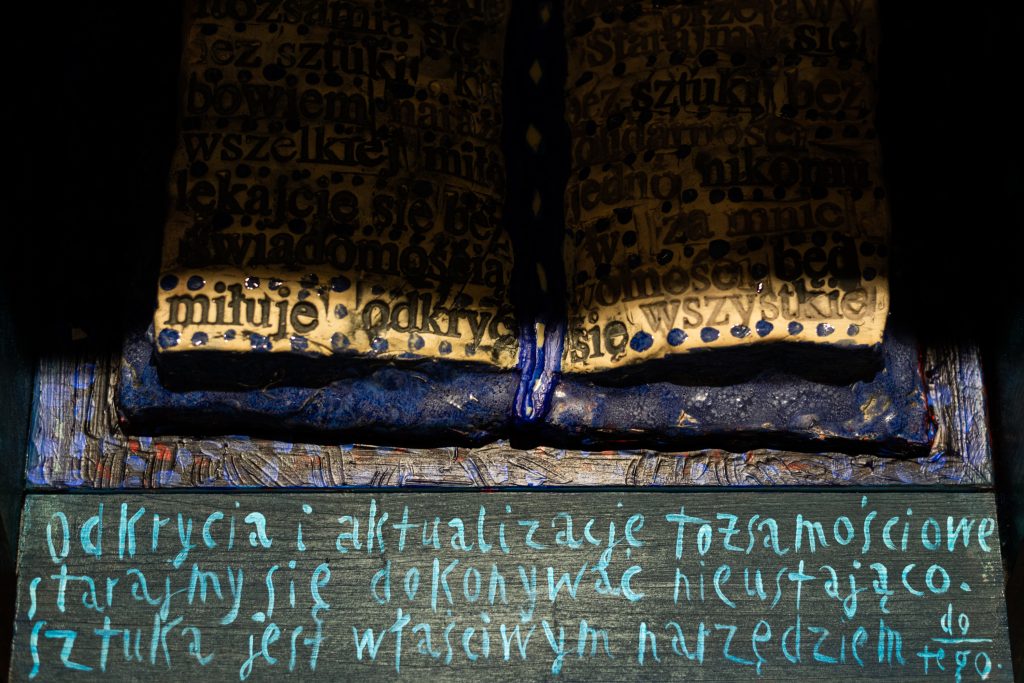 się
bez sztuki
bowiem naraż
wszelkiej miło
lękajcie się bez
świadomością
miłuje odkryć
przejawy
Starajmy się
bez sztuki bez
solidarności
jedno nikomu
w za mnie
womości będ
się wszystkie
odkrycia i aktualizację tozsamościowe
starajmy się dokonywać nieustająco.
sztuka jest właściwym narzędziem do
tego.